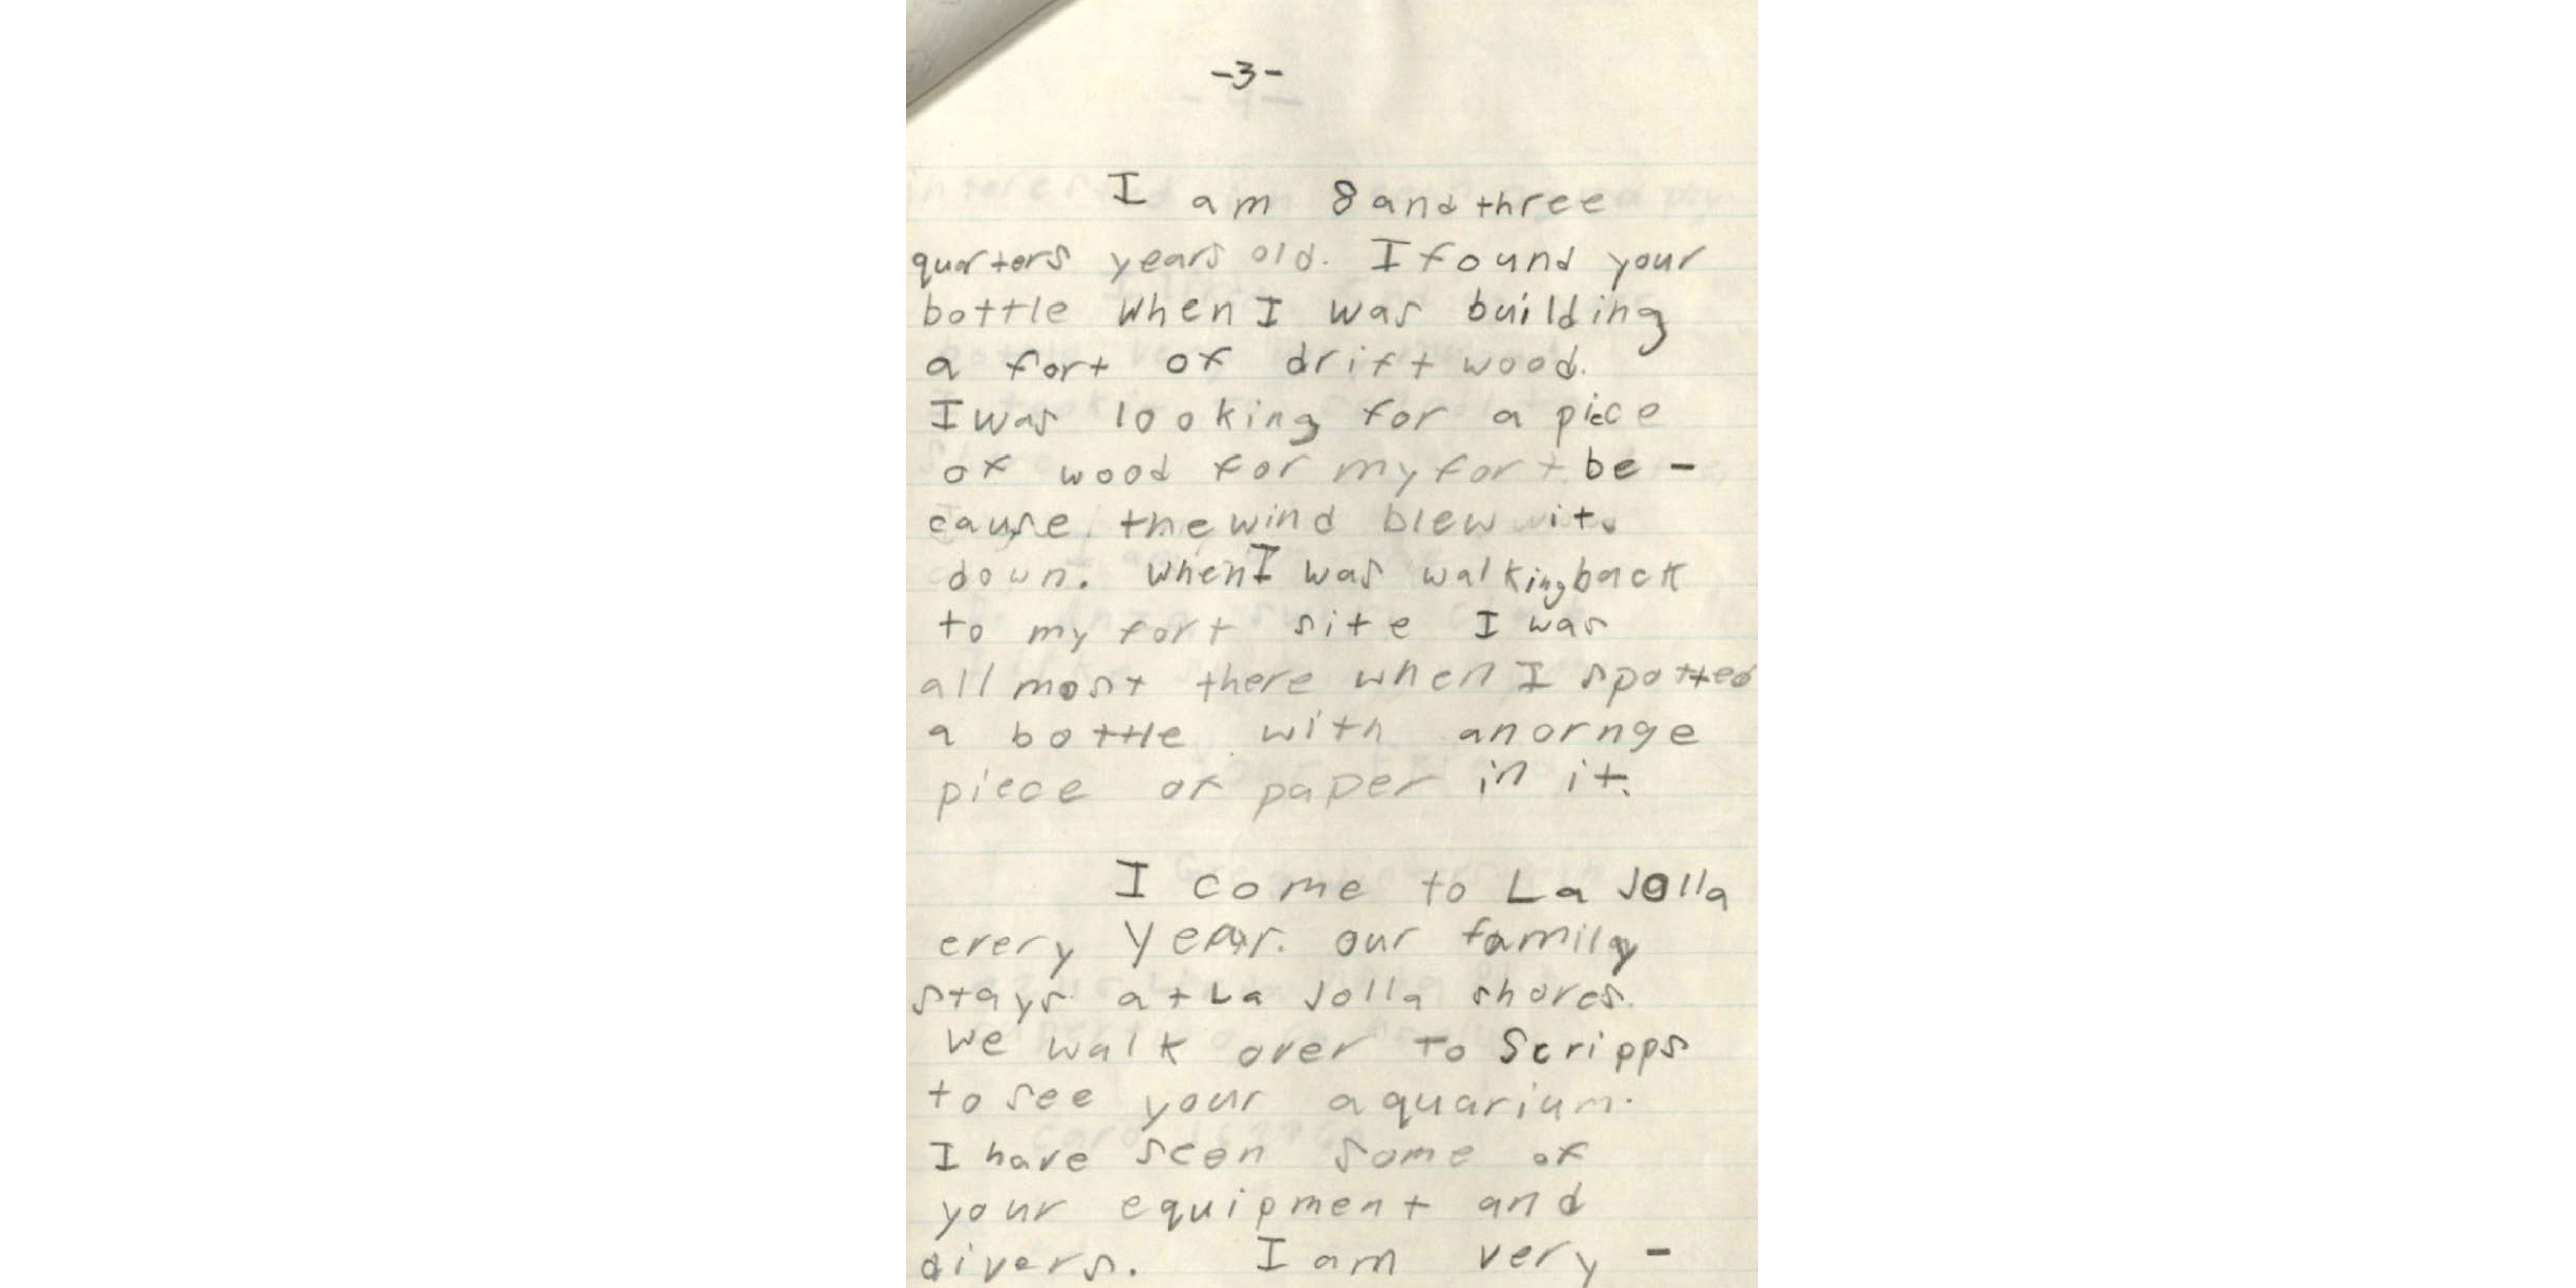 -3-
I am 8 and three
quarters years old. I found your
bottle when I was building
a fort of drift wood.
I was looking for a piece
of wood for my fort be -
cause the wind blew it.
down. When I was walking back
to my fort site I was
all most there when I spotted
a bottle with an ornge
piece of paper in it.
I come to La Jolla
every year. our family
stays at La Jolla shores.
We walk over to Scripps
to see your aquarium.
I have seen some of
your equipment and
divers. I am very -